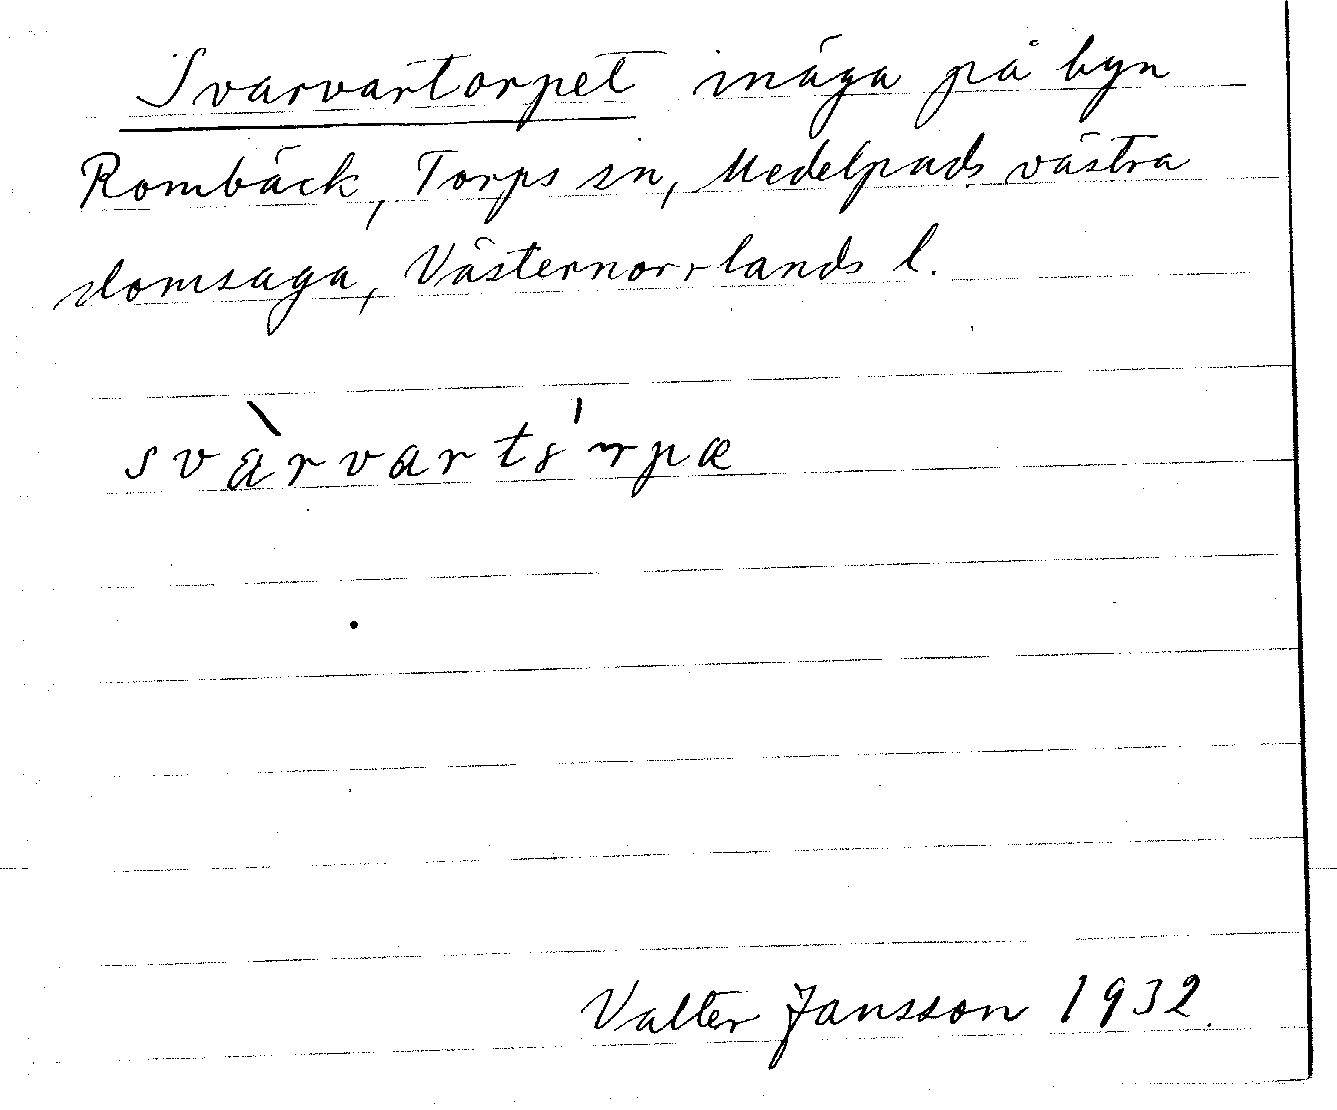 Svarvartorpet inäga på byn
Rombäck, Torps sn, Medelpads västra
domsaga, Västernorrlands l.
Valter Jansson 1932.